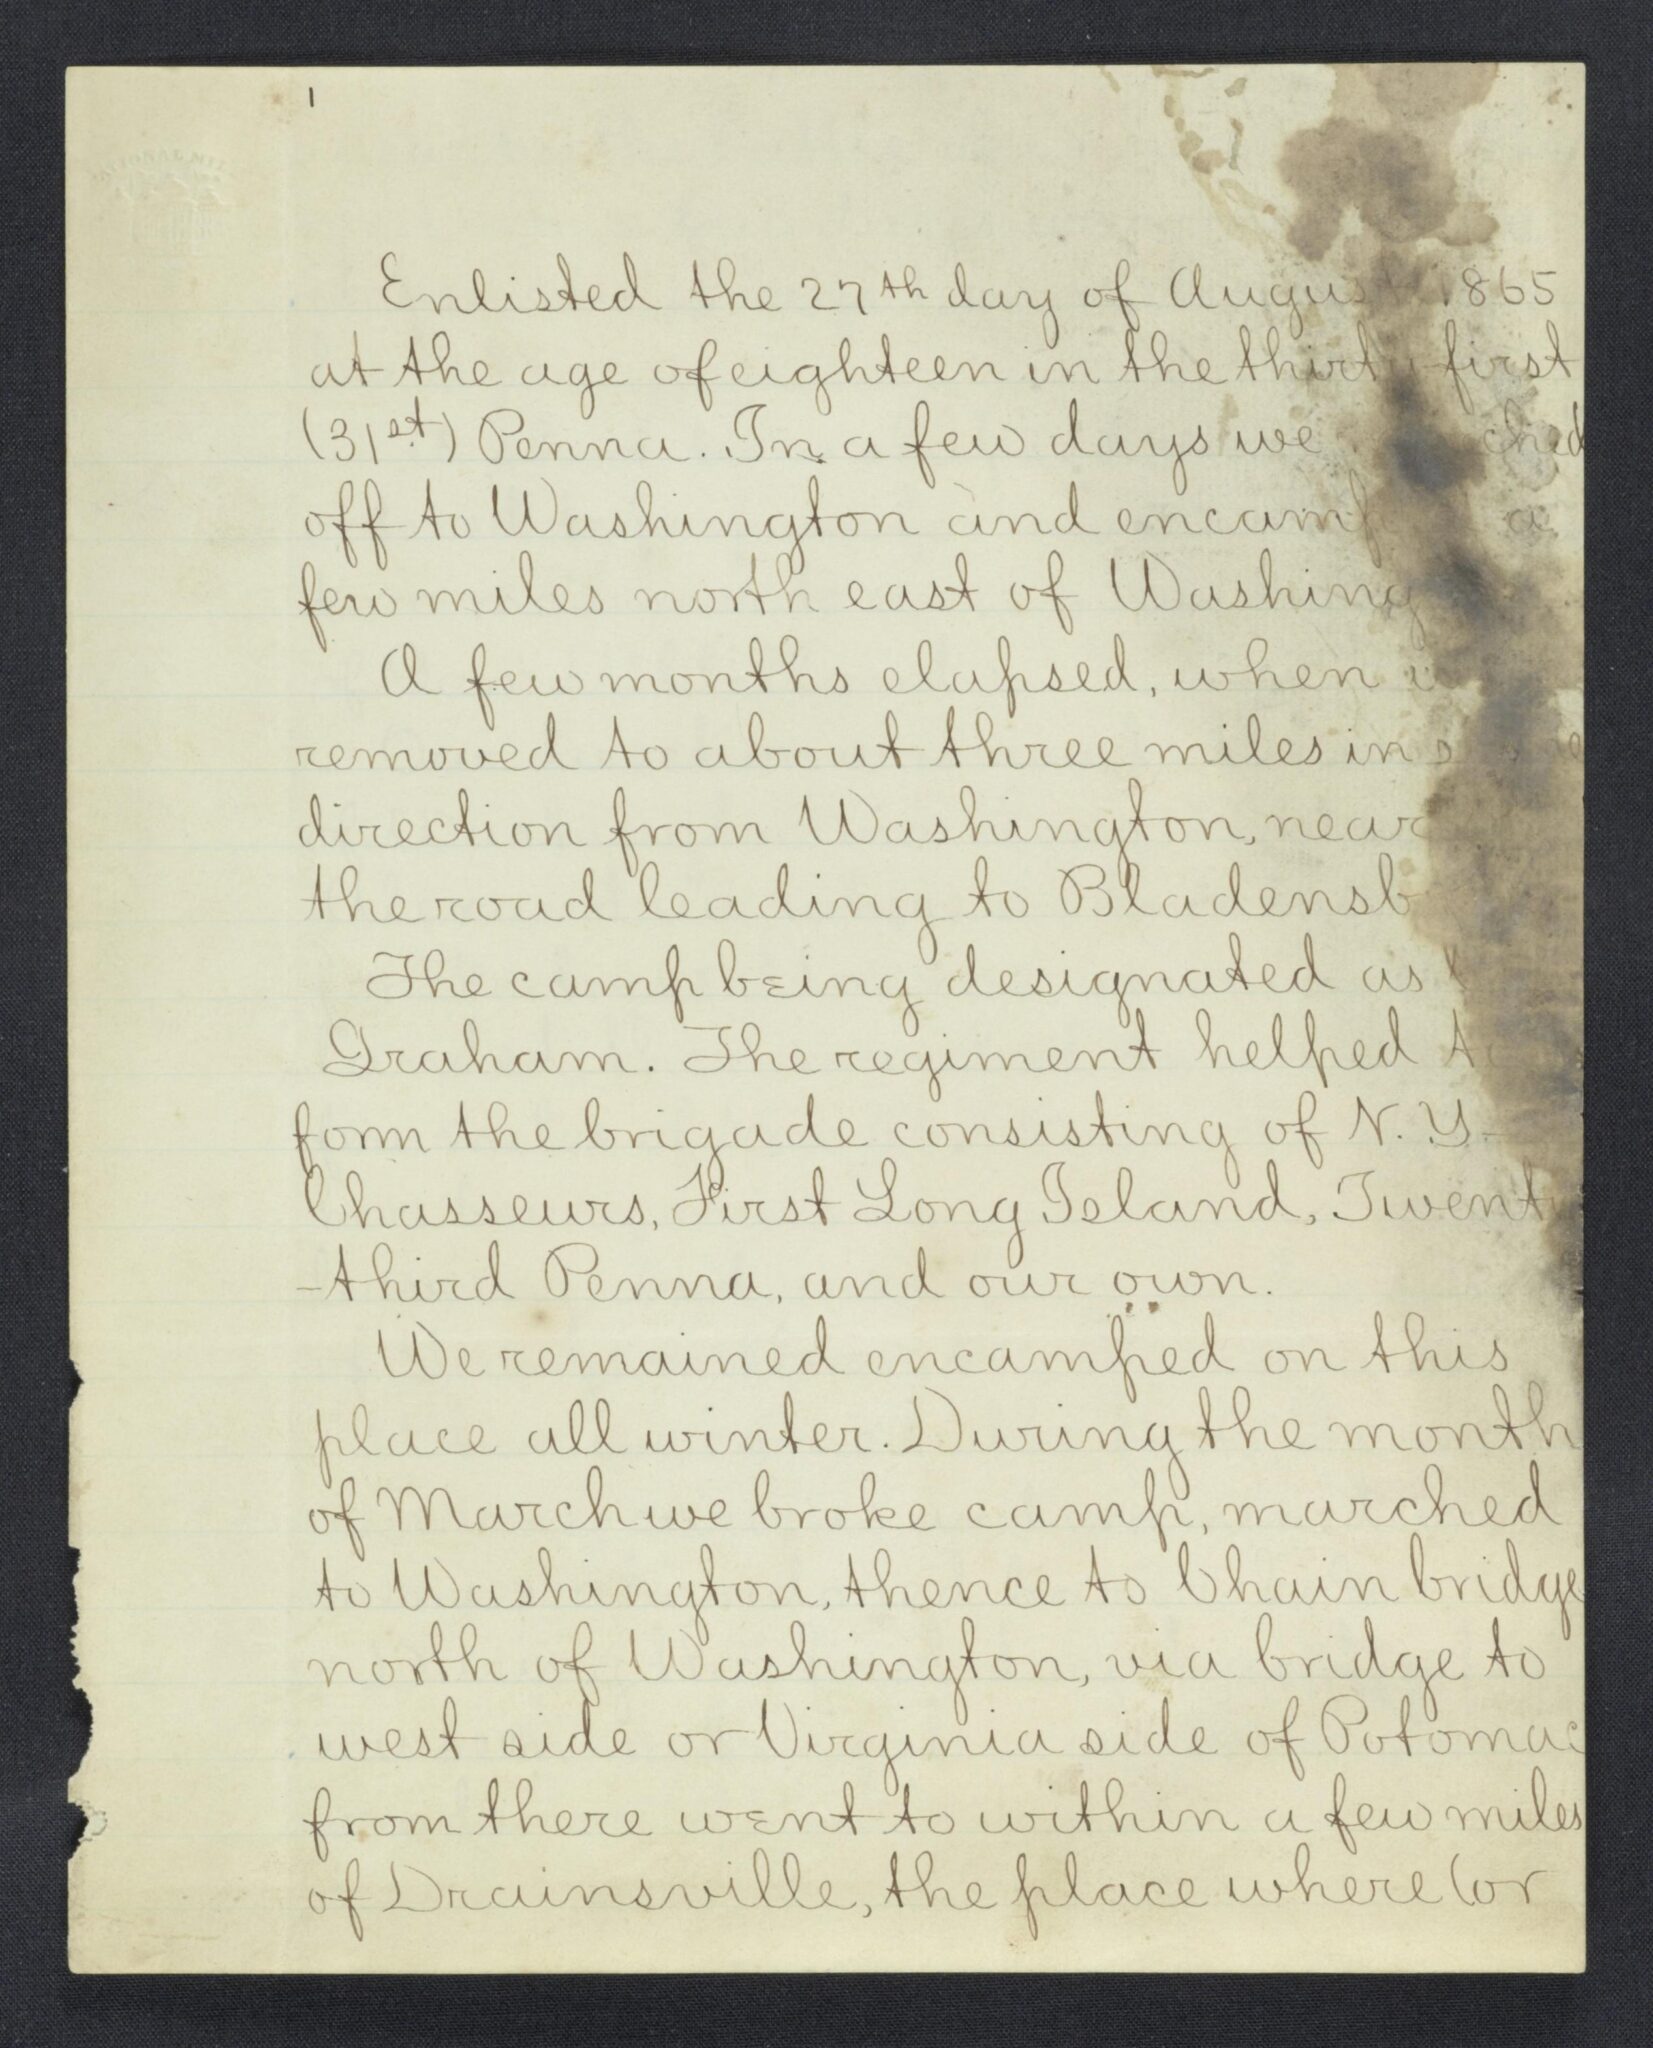 1
Enlisted the 27th day of August 1865
at the age of eighteen in the thirty first
(31st) Penna. In a few days we
off to Washington and a
few miles north east of
A few months elapsed, when
removed to about three miles in
direction from Washington, near
the road leading to
The camp being designated as
Graham. The regiment helped to
form the brigade consisting of N. Y.
Chasseurs, First Long Island, Twenty
-third Penna, and our own.
We remained encamped on this
place all winter. During the month
of March we broke camp, marched
to Washington, thence to Chain bridge
north of Washington, via bridge to
west side or Virginia side of Potomac
from there went to within a few miles
of Drainsville, the place where (or